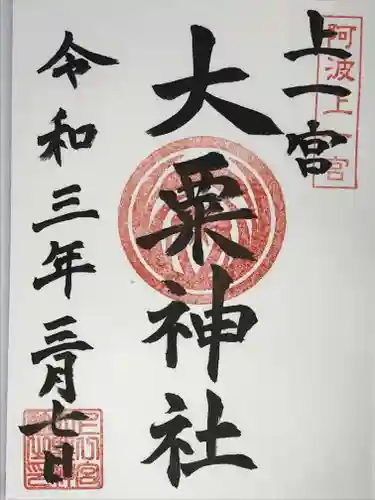 阿波上一宮
上一宮
大粟神社
令和三年三月七日